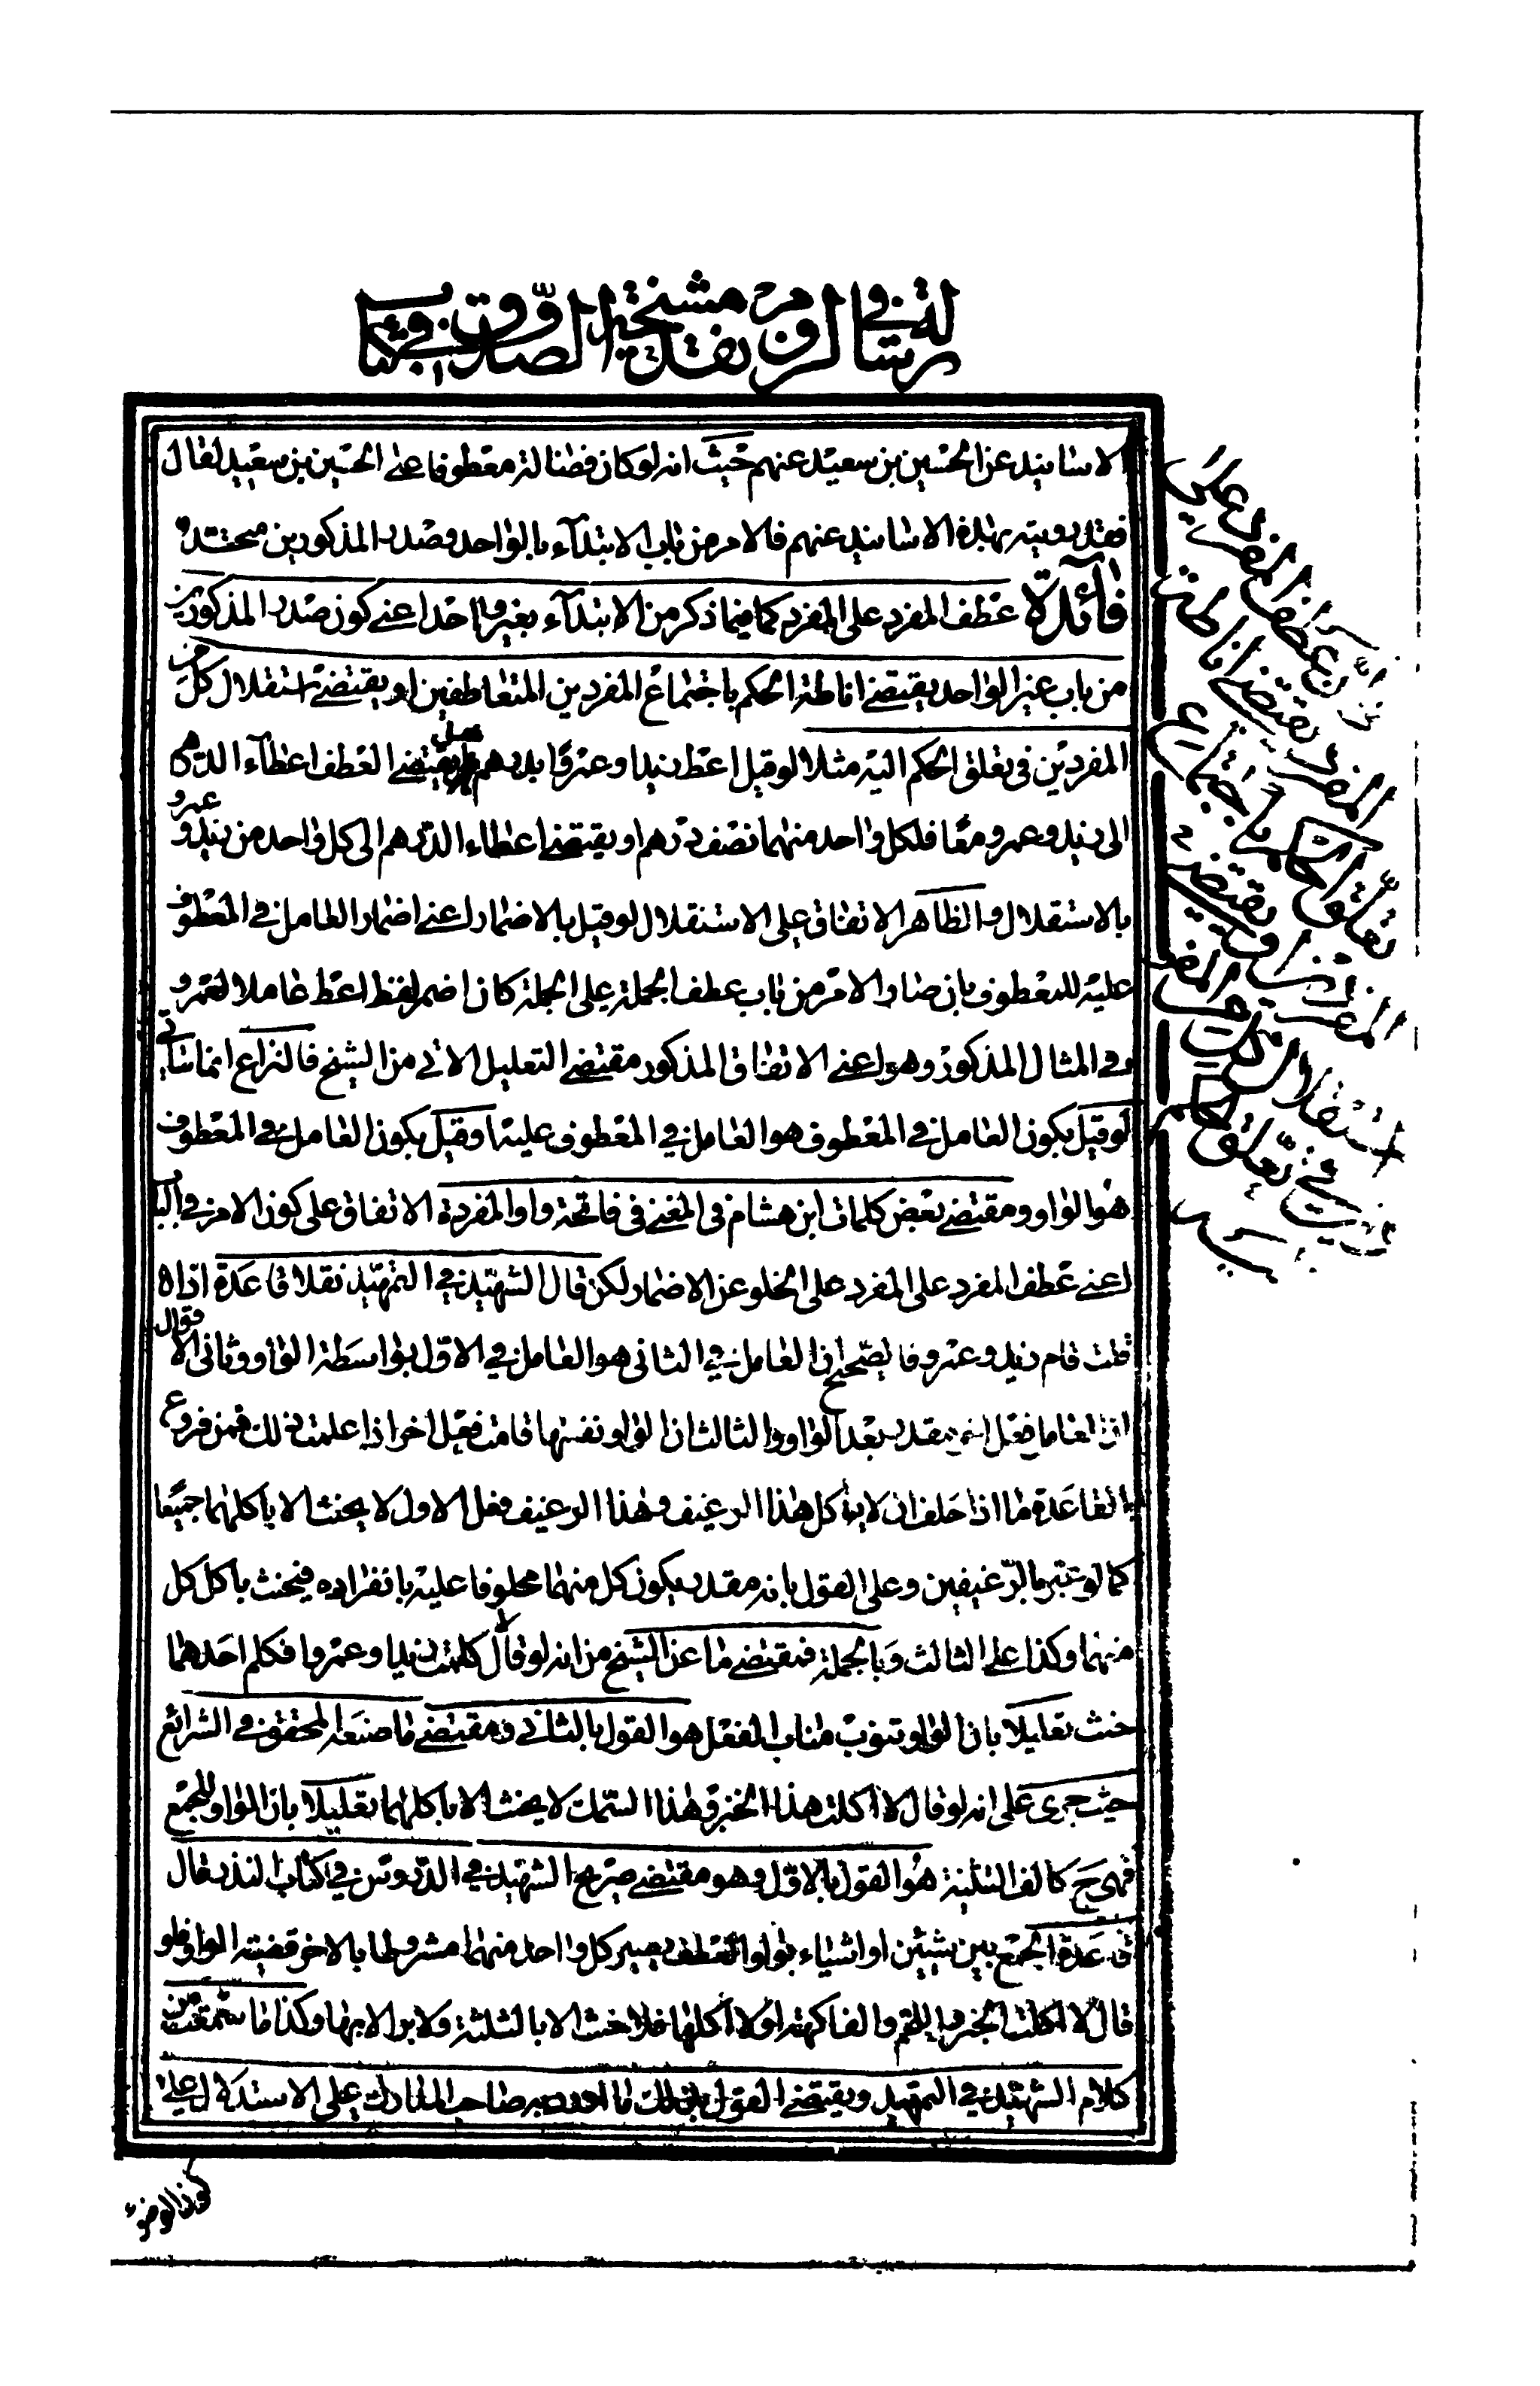 رسالة في لزوم نقد مشيخة الصدوق في كتاب
الاسانيد عن الحسين بن سعيد عنهم حيث انه لو كان فضالة معطوفا على الحسين بن سعيد لقال
فقد رويته بهذه الاسانيد عنهم فالامر من باب الابتداء بالواحد وصدر المذكورين متحد
فائدة عطف المفرد على المفرد كما فيما ذكر من الابتداء بغير واحد اعني كون صدر المذكورين
من باب غير الواحد يقتضي اناطة الحكم باجتماع المفردين المتعاطفين او يقتضي استقلال كل من
المفردين في تعلق الحكم اليه مثلا لو قيل اعط زيدا وعمروا بدرهم هل يقتضي العطف اعطاء الدرهم
الى زيد وعمرو معا فلكل واحد منهما نصف درهم او يقتضي اعطاء الدرهم الى كل واحد من زيد وعمرو
بالاستقلال والظاهر الاتفاق على الاستقلال لو قيل بالاضمار اعني اضمار العامل في المعطوف
عليه للمعطوف بان صار الامر من باب عطف الجملة على الجملة كان اضمر لفظ اعط عاملا لعمرو
في المثال المذكور وهو اعني الاتفاق المذكور مقتضى التعليل الاتي من الشيخ فالنزاع انما يتاتي
لو قيل بكون العامل في المعطوف هو العامل في المعطوف عليه او قيل بكون العامل في المعطوف
هو الواو ومقتضى بعض كلمات ابن هشام في المغني في فاتحة واو المفردة الاتفاق على كون الامر في الباب
اعني عطف المفرد على المفرد على الخلو عن الاضمار لكن قال الشهيد في التمهيد نقلا قاعدة اذا
قلت قام زيد وعمرو فالصحيح ان العامل في الثاني هو العامل في الاول بواسطة الواو وثاني الاقوال
ان العامل فعل اخر مقدر بعد الواو والثالث ان الواو نفسها قامت فعل اخر اذا علمت ذلك فمن فروع
القاعدة ما اذا حلف ان لا ياكل هذا الرغيف وهذا الرغيف فعلى الاول لا يحنث الا باكلهما جميعا
كما لو عبر بالرغيفين وعلى القول بانه مقدر يكون كل منهما محلوفا عليه بانفراده فيحنث باكل كل
منهما وكذا على الثالث وبالجملة فمقتضى ما عن الشيخ من انه لو قال لا كلمت زيدا وعمروا فكلم احدهما
حنث تعليلا بان الواو تنوب مناب الفعل هو القول بالثاني ومقتضى ما صنعه المحقق في الشرايع
حيث جرى على انه لو قال لا اكلت هذا الخبز وهذا السمك لا يحنث الا باكلهما تعليلا بان الواو للجمع
فهي كالف التثنية هو القول بالاول وهو مقتضى صريح الشهيد في الدروس في كتاب النذر قال
قاعدة الجمع بين شيئين او اشياء بواو العطف يصير كل واحد منهما مشروطا بالاخر قضية الواو فلو
قال لا اكلت الخبز واللحم والفاكهة او لا اكلها فلا حنث الا بالثلثة ولا بر الا بها وكذا ما سمعت من
كلام الشهيد في التمهيد ويقتضي القول بذلك ما اورد به صاحب المدارك على الاستدلال على
كون الوضوء
في ان عطف المفرد على
المفرد يقتضي اناطة
الحكم باجتماع
المفردين او يقتضي
استقلال كل من
المفردين في تعلق الحكم